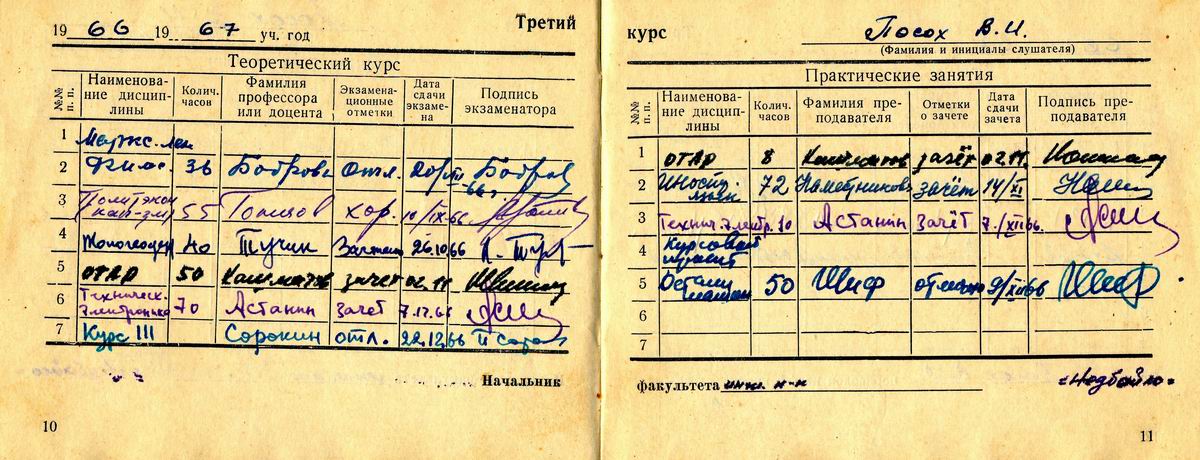 19 66 19 67 уч. год Третий
Теоретический курс
№№ п. п.
Наименова-
ние дисцип-
лины
Колич.
часов
Фамилия
профессора
или доцента
Экзамена-
ционные
отметки
Дата
сдачи
экзаме-
на
Подпись
экзаменатора
1 Маркс. лен
2 Фил. 36 Боброва Отл. 20/XII 66г. Бобров
3 Политэкон 55 хор. 10/IX-66
4 40 Тучин 26.10.66
5 ОТАР 50 зачет 02.11
6 Техническ. 70 Астанин Зачёт 7.12.66
7 Курс III Сорокин отл. 22.12.66
Начальник
10
курс Посох В.И.
(Фамилия и инициалы слушателя)
Практические занятия
№№ п. п.
Наименова-
ние дисцип-
лины
Колич.
часов
Фамилия пре-
подавателя
Отметки
о зачете
Дата
сдачи
зачета
Подпись пре-
подавателя
1 ОТАР 8 зачёт 02.11.
2 72 Наместников зачёт 14/XI
3 Технич. электр. 10 Астанин Зачёт 7./XII 66.
4 Курсовой
проект
5 50 Шиф 9/XII 66 Шиф
6
7
факультета инж.
=Недбайло=
11